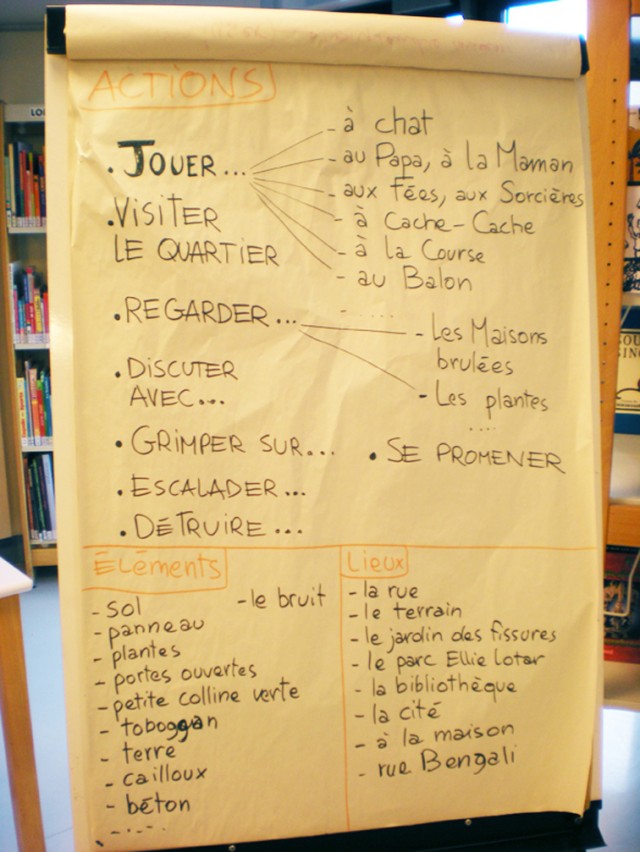 ACTIONS
• JOUER...
- à chat
- au Papa, à la Maman
- aux Fées, aux Sorcières
- à Cache-Cache
- à la Course
- au Balon
- .....
• VISITER
LE QUARTIER
• REGARDER...
- Les Maisons
brulées
- Les plantes
....
• DISCUTER
AVEC...
• GRIMPER SUR...
• SE PROMENER
• ESCALADER...
• DÉTRUIRE...
ÉLÉMENTS
- sol
- le bruit
- panneau
- plantes
- portes ouvertes
- petite colline verte
- toboggan
- terre
- cailloux
- béton
- .....
Lieux
- la rue
- le terrain
- le jardin des fissures
- le parc Ellie lotar
- la bibliothèque
- la cité
- à la maison
- rue Bengali